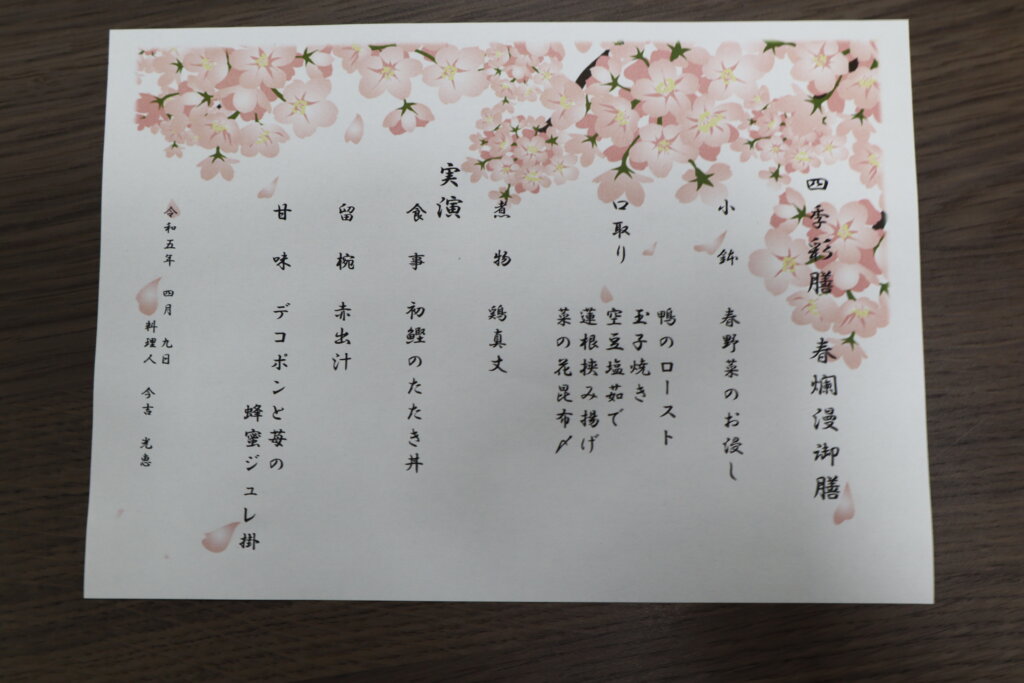 四季彩膳 春爛漫御膳
小鉢 春野菜のお浸し
口取り 鴨のロースト
玉子焼き
空豆塩茹で
蓮根挟み揚げ
菜の花昆布〆
煮物 鶏真丈
実演
食事 初鰹のたたき丼
留椀 赤出汁
甘味 デコポンと苺の
蜂蜜ジュレ掛
令和五年 四月九日
料理人 今吉 光恵